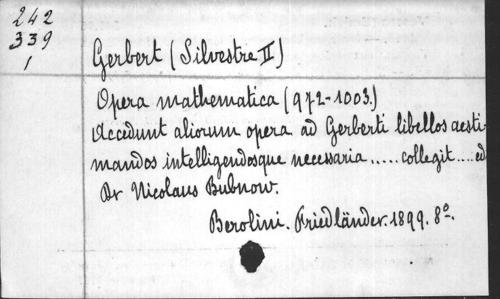 242
339
1
Gerbert (Silvestre II)
Opera mathematica (972-1003.)
Accedunt aliorum opera ad Gerberti libellos aesti-
mandos intelligendosque necessaria ..... collegit .... ed
Dr Nicolaus Bubnow.
Berolini. Friedländer. 1899. 8º.